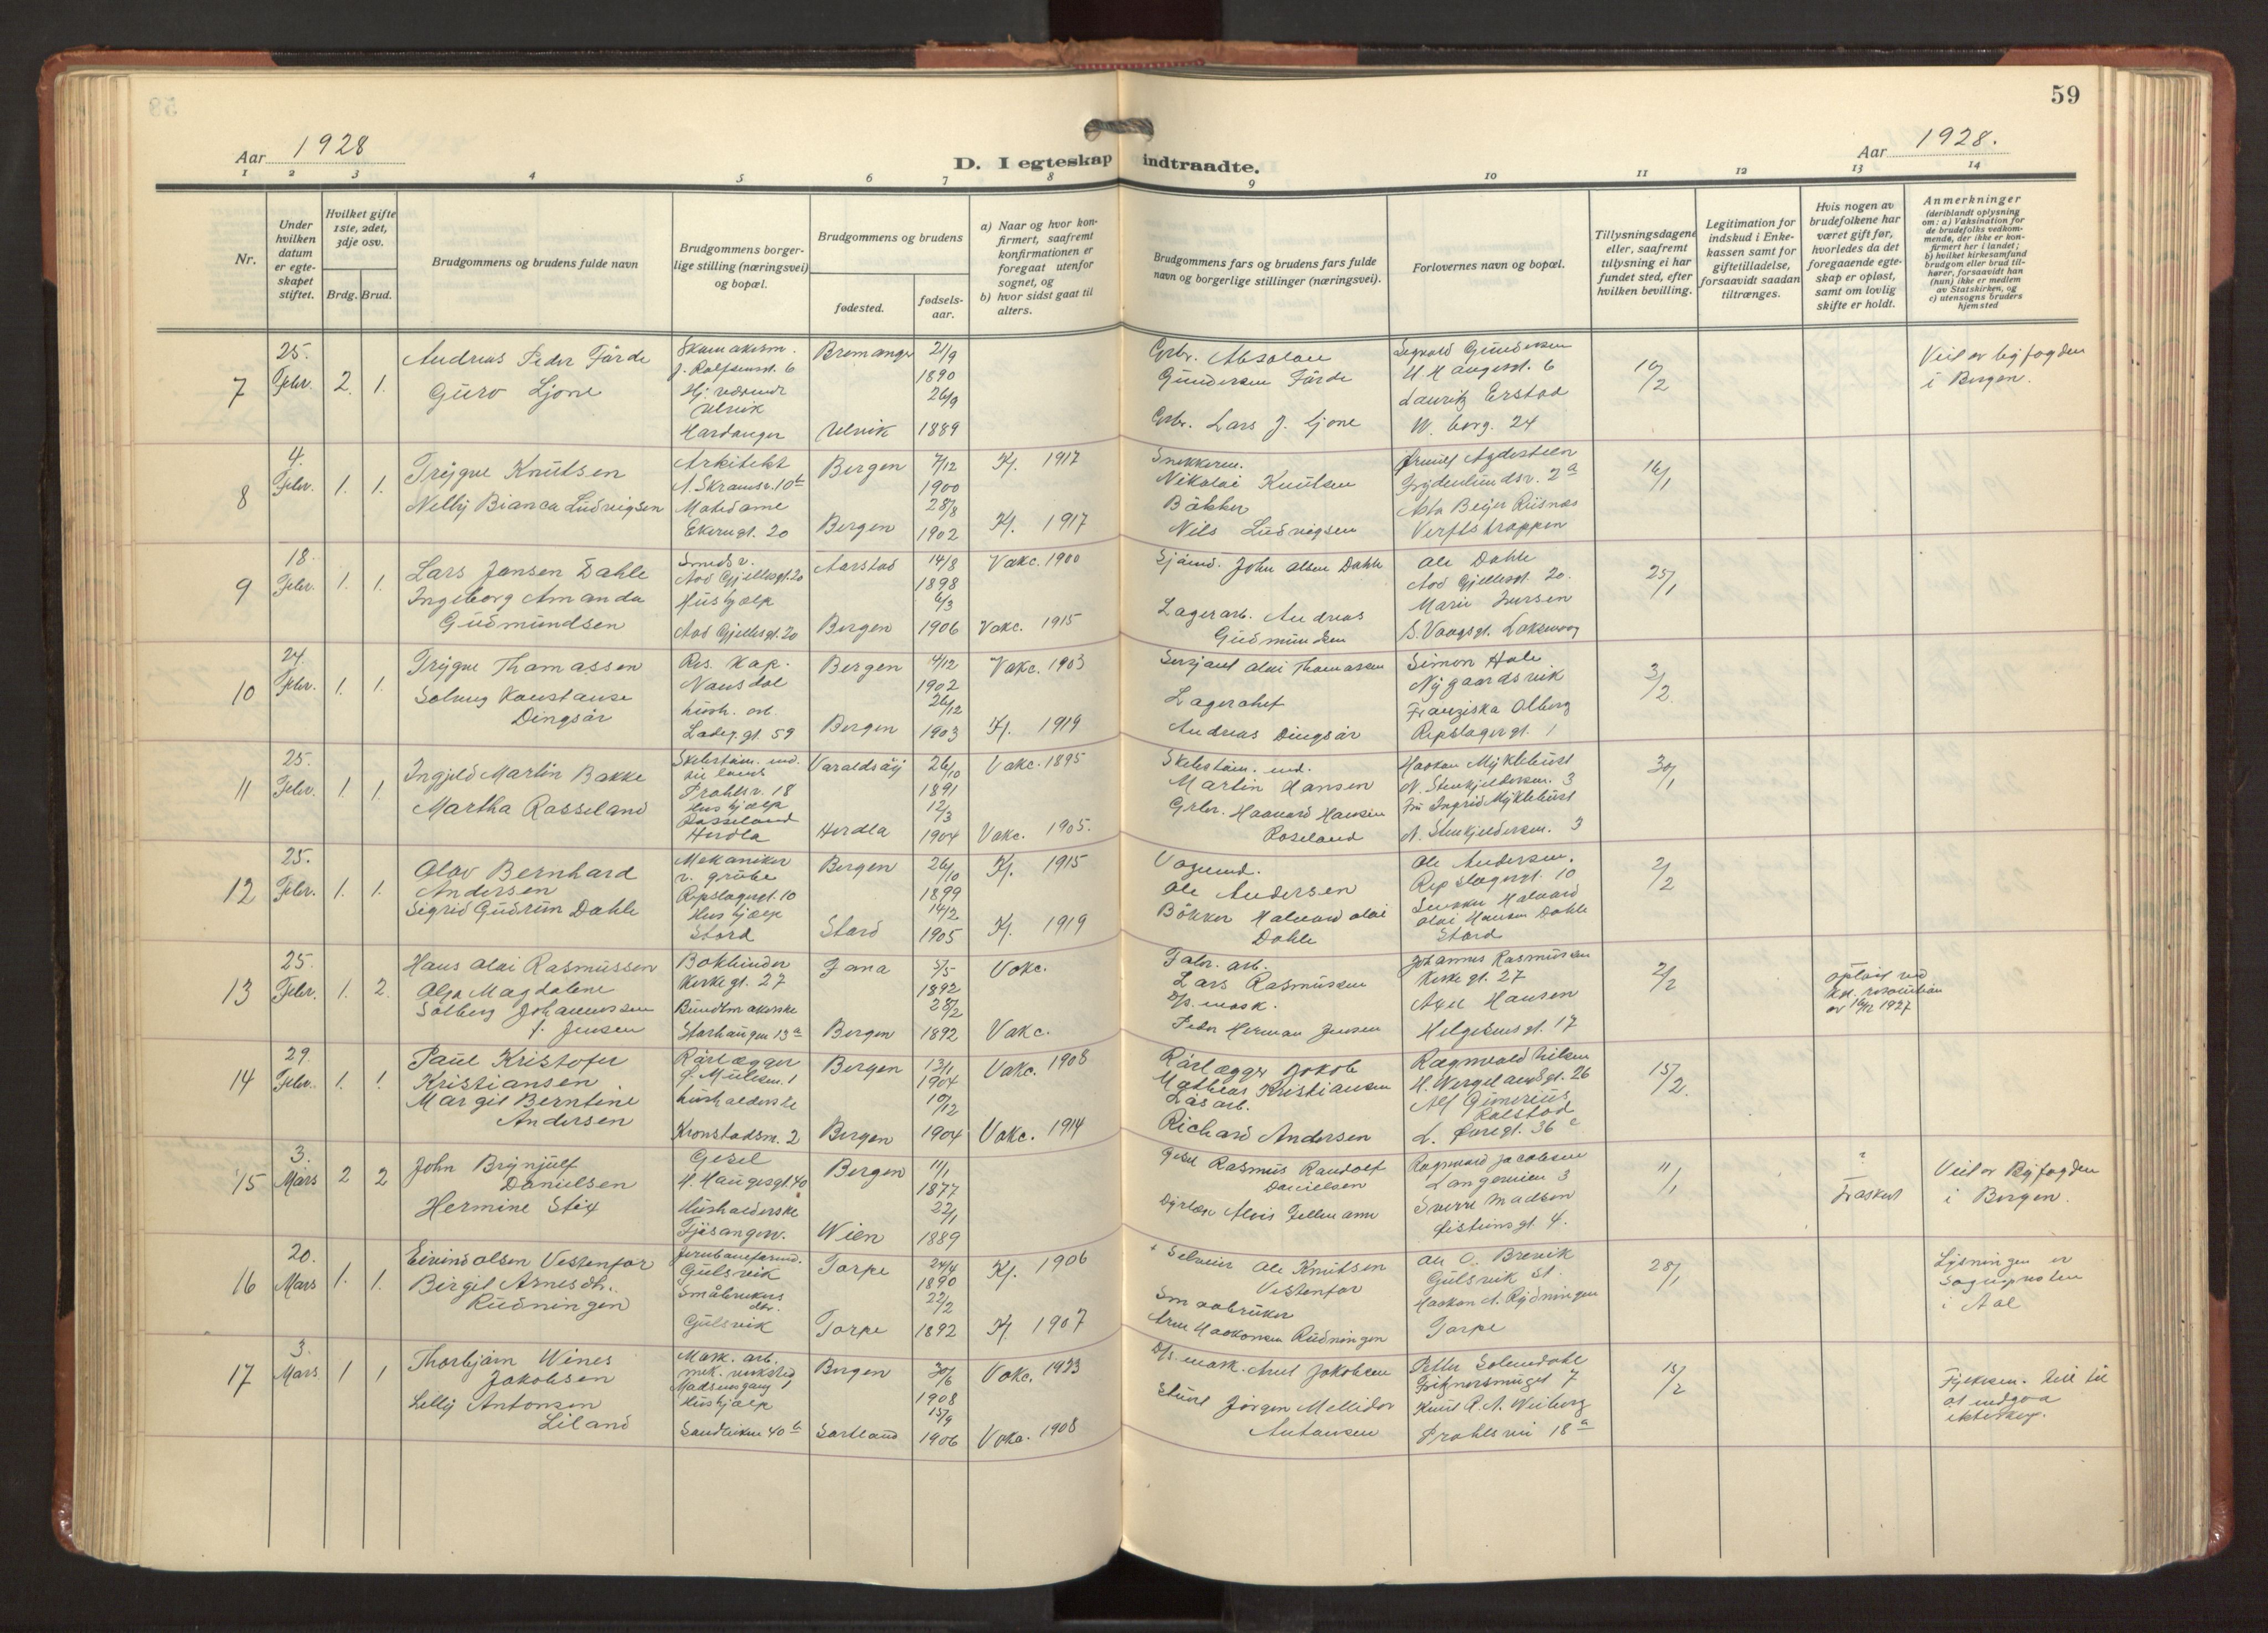 59
Aar 1928
D. I egteskap indtraadte.
Aar 1928.
1 2 3 4 5 6 7 8 9 10 11 12 13 14
Nr.
Under hvilken datum er egteskapet stiftet.
Hvilket gifte 1ste, 2det, 3dje osv.
Brdg. Brud.
Brudgommens og brudens fulde navn
Brudgommens borgerlige stilling (næringsvei) og bopæl.
Brudgommens og brudens
fødested.
fødselsaar.
a) Naar og hvor konfirmert, saafremt konfirmationen er foregaat utenfor sognet, og
b) hvor sidst gaat til alters.
Brudgommens fars og brudens fars fulde navn og borgerlige stillinger (næringsvei).
Forlovernes navn og bopæl.
Tillysningsdagene eller, saafremt tillysning ei har fundet sted, efter hvilken bevilling.
Legitimation for indskud i Enkekassen samt for giftetilladelse, forsaavidt saadan tiltrænges.
Hvis nogen av brudefolkene har været gift før, hvorledes da det foregaaende egteskap er opløst, samt om lovlig skifte er holdt.
Anmerkninger
(deriblandt oplysning om: a) Vaksination for de brudefolks vedkommende, der ikke er konfirmert her i landet; b) hvilket kirkesamfund brudgom eller brud tilhører, forsaavidt han (hun) ikke er medlem av Statskirken, og c) utensogns bruders hjemsted
7 25. Febr. 2. 1.
Andreas Peder Førde
Guro Ljone
Skomakerm.
J. Rolfsensgt. 6
Ulvik
Hardanger
Bremanger 21/9 1890
Ulvik 26/9 1889
Grbr. Absolon
Gundersen Førde
Grbr. Lars J. Ljone
Sigvald Gundersen
H Haugesgt. 6
Lauritz Erstad
W. borg. 24
10/2
Viet av byfogden
i Bergen.
8 4. Febr. 1. 1.
Trygve Knutsen
Nelly Bianca Ludvigsen
Arkitekt
A. Skramsv. 10b
Motedame
Ekerngt. 20
Bergen 7/12 1900 Kf. 1917
Bergen 28/8 1902 Kf. 1917
Snekkerm.
Nikolai Knutsen
Bøkker
Nils Ludvigsen
Arnulf Agdesteen
Frydenlundsv. 2a
Asta Beyer Riisnæs
Verftstrappen
16/1
9 18. Febr. 1. 1.
Lars Jansen Dahle
Ingeborg Amanda
Gudmundsen
Smedsv.
Aad Gjellesgt. 20
Hushjælp
Aad Gjellesgt. 20
Aarstad 14/8 1898 Vakc. 1900
Bergen 6/3 1906 Vakc. 1915
Sjømd. John Olsen Dahle
Lagerarb. Andreas
Gudmundsen
Ole Dahle
Aad Gjellesgt. 20.
Marie Iversen
S. Vaagsgt. Laksevaag
25/1
10 24. Febr. 1. 1.
Trygve Thomassen
Solveig Konstanse
Dingsør
Res. Kap.
Naustdal
hush. arb.
Ladeg.gt. 59
Bergen 4/12 1902 Vakc. 1903
Bergen 26/12 1903 Kf. 1919
Sersjant Olai Thomassen
Lagerchef
Andreas Dingsør
Simon Hole
Nygaardsvik
Franziska Olberg
Repslagergt. 1
3/2
11 25. Febr. 1. 1.
Ingjeld Martin Bakke
Martha Rosseland
Prahlsv. 18
Hushjælp
Rosseland
Herdla
Varaldsøy 26/10 1891 Vakc. 1895
Herdla 12/3 1904 Vakc. 1905.
Martin Hansen
Grbr. Haavard Hansen
Roseland
Haakon Myklebust
N. Stenkjeldersm. 3
Fru Ingrid Myklebust
N. Stenkjeldersm. 3
30/1
12 25. Febr. 1. 1.
Olav Bernhard
Andersen
Sigrid Gudrun Dahle
Mekaniker
v. grube
Repslagergt. 10
Hushjælp
Stord
Bergen 26/10 1899 Kf. 1915
Stord 14/2 1905 Kf. 1919
Vognmd.
Ole Andersen
Bøkker Halvard Olai
Dahle
Ole Andersen.
Repslagergt. 10
Halvard
Olai Hansen Dahle
Stord
2/2
13 25. Febr. 1. 2.
Hans Olai Rasmussen
Olga Magdalene
Solberg Johannessen
f. Jensen
Bokbinder
Kirkegt. 27
Buntmakerske
Storhaugen 13a
Fana 5/5 1892 Vakc.
Bergen 28/2 1892 Vakc.
Fabr. arb.
Lars Rasmussen
D/s. mask.
Peder Herman Jensen
Johannes Rasmussen
Kirkegt. 27
Axel Hansen
Helgesensgt. 17
2/2
opløst ved
kgl. resolution
av 16/12 1927
14 29. Febr. 1. 1.
Paul Kristofer
Kristiansen
Margit Berntine
Andersen
Rørlægger
L. Mulesm. 1
husholderske
Kronstadsm. 2
Bergen 13/1 1904 Vakc. 1908
Bergen 10/12 1904 Vakc. 1914
Rørlægger Jakob
Mathias Kristiansen
Løsarb.
Richard Andersen
Ragnvald Nilsen
H. Wergelandsgt. 26
Alf Gunerius
Rolstad
L. Øvregt. 36c
15/2.
15 3. Mars 2 2
John Brynjulf
Danielsen
Hermine Stix
Gesel
H. Haugesgt. 40
Husholderske
Fjøsangerv.
Bergen 11/1 1877
Wien 22/1 1889
Gesel Rasmus Randolf
Danielsen
Dyrlæge Alois Fellmann
Ragnvald Jacobsen
Langeveien 3
Sverre Madsen
Øisteinsgt. 4.
11/1
?
fraskilt
Viet av Byfogden
i Bergen.
16 20. Mars 1. 1.
Eivind Olsen Vestenfor
Birgit Arnesdt.
Rudningen
Jernbaneformd.
Gulsvik
Småbrukers
dtr.
Gulsvik
Torpe 24/4 1890 Kf. 1906
Torpe 22/2 1892 Kf 1907
+ Selveier Ole Knutsen
Vestenfor
Smaabruker
Arne Haakonsen Rudningen
Ole O. Brevik
Gulsvik st.
Haakon A. Rudningen
Torpe
28/1
Lysningen er
Sognepresten
i Aal
17 3. Mars 1 1
Thorbjørn Wines
Jakobsen
Lelly Antonsen
Liland
Mask. arb.
mek. verksted
Madsensgang 1
Hushjælp
Sandviken 40b
Bergen 30/6 1908 Vakc. 1923
Sortland 15/9 1906 Vakc. 1908
D/s. mask. Arnt Jakobsen
Stuert Jørgen Mellidor
Antonsen
Petter Solemdahl
Fritznersmuget 7
Knut R. A. Wiberg
Prahlsvei 18a
15/2
Fylkesm. till til
at indgaa
ekteskap.